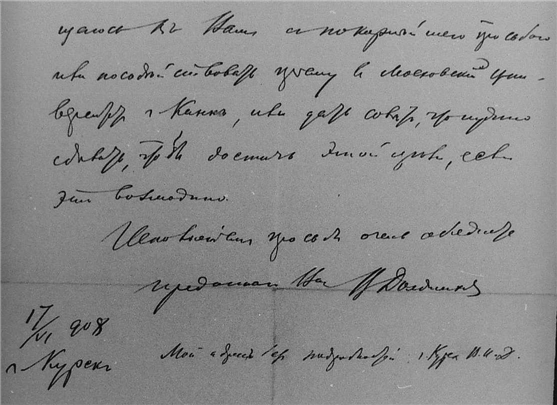 щаюсь къ Вамъ съ покорнѣйшею просьбою
или посодѣйствовать пріему въ Московскій Уни-
верситетъ г. или дать совѣтъ, что нужно
сдѣлать, чтобы достичь этой цѣли, если
это возможно.
Исполненіемъ просьбы очень обяжете
преданнаго Вамъ
17/VI 908
г. Курскъ
Мой адресъ г. Курскъ